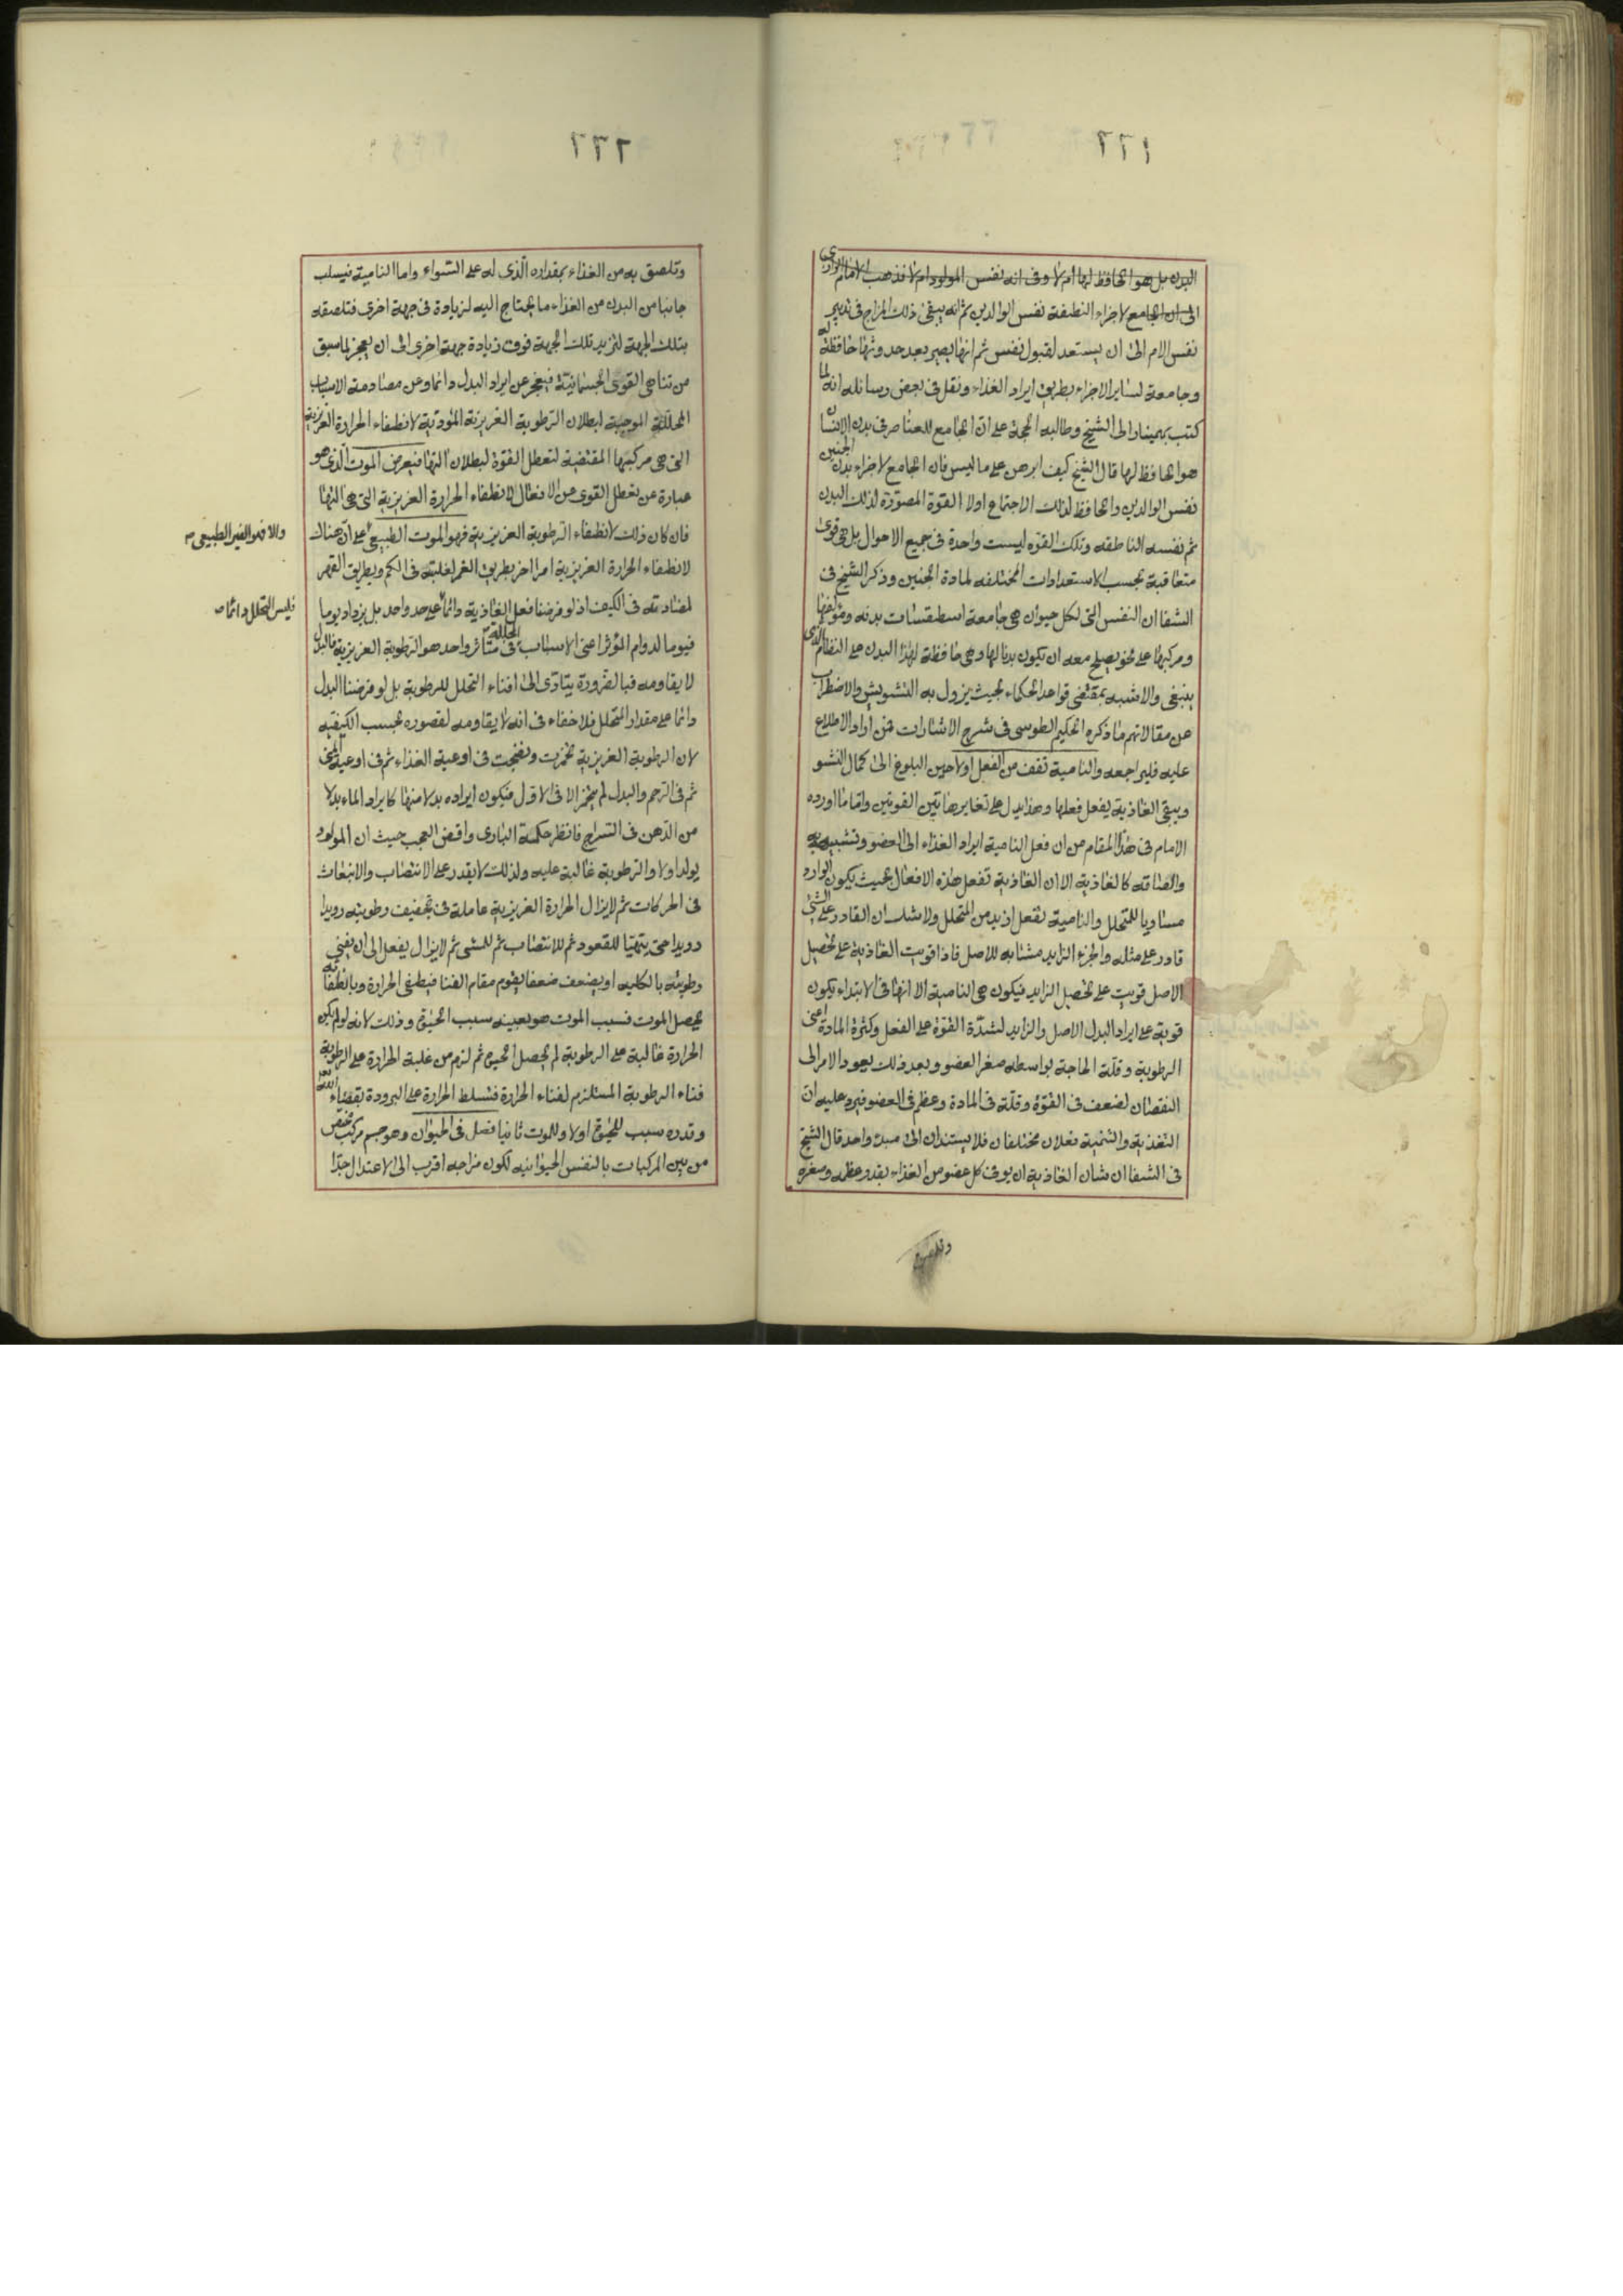 ٢٢١
البدن بل هو الحافظ لها ام لا وفى انه نفس المولود ام لا فذهب الامام الرازى
الى ان الجامع لاجزاء النطفة نفس الوالدين ثم انه يبقى ذلك المزاج فى تدبير
نفس الام الى ان يستعد لقبول نفس ثم انها يصير بعد حدوثها حافظة له
وجامعة لساير الاجزاء بطريق ايراد الغذاء ونقل فى بعض رسائله انه لما
كتب بهمنيار الى الشيخ وطالبه الحجة على ان الجامع للعناصر فى بدن الانسان
هو الحافظ لها قال الشيخ كيف ابرهن على ما ليس فان الجامع لاجزاء بدن الجنين
نفس الوالدين والحافظ لذلك الاجتماع اولا القوة المصورة لذلك البدن
ثم نفسه الناطقه وتلك القوه ليست واحدة فى جميع الاحوال بل هى قوى
متعاقبة بحسب الاستعدادات المختلفه لمادة الجنين وذكر الشيخ فى
الشفا ان النفس التى لكل حيوان هى جامعة اسطقسات بدنه ومؤلفها
ومركبها على نحو يصلح معه ان يكون بدنا لها وهى حافظة لهذا البدن على النظام الذى
ينبغى والاشبه بمقتضى قواعد الحكماء بحيث يزول به التشويش والاضطراب
عن مقالاتهم ما ذكره الحكيم الطوسى فى شرح الاشارات فمن اراد الاطلاع
عليه فليراجعه والنامية تقف من الفعل اولا حين البلوغ الى كمال النشو
ويبقى الغاذية يفعل فعلها وهذا يدل على تغاير هاتين القوتين واما ما اورده
الامام فى هذا المقام من ان فعل النامية ايراد الغذاء الى العضو وتشبيهه به
والصاقه كالغاذية الا ان الغاذية تفعل هذه الافعال بحيث يكون الوارد
مساويا للمتحلل والنامية تفعل ازيد من المتحلل ولا شك ان القادر على الشئ
قادر على مثله والجزء الزايد مشتابه للاصل فاذا قويت الغاذية على تحصيل
الاصل قويت على تحصيل الزايد فيكون هى النامية الا انها فى الابتداء يكون
قوية على ايراد البدل الاصل والزايد لشدة القوة على الفعل وكثرة المادة اعنى
الرطوبة وقلة الحاجة بواسطه صغر العضو وبعد ذلك يعود الامر الى
النقصان لضعف فى القوة وقلة فى المادة وعظم فى العضو فيرد عليه ان
التغذية والتنمية فعلان مختلفان فلا يستندان الى مبدء واحد قال الشيخ
فى الشفا ان شان الغاذية ان يوتى كل عضو من الغذاء بقدر عظمه وصغره
وتلصق
٢٢٢
وتلصق به من الغذاء بمقداره الذى له على السواء واما النامية فيسلب
جانبا من البدن من الغذاء ما يحتاج اليه لزيادة فى جهة اخرى فتلصقه
بتلك الجهة لتزيد تلك الجهة فوق زيادة جهة اخرى الى ان يعجز لما سبق
من تناهى القوى الجسمانية فيعجز عن ايراد البدل دائما وعن مصادمة الاسباب
المحللة الموجبة لبطلان الرطوبة الغريزية المؤدية لانطفاء الحرارة الغريزية
التى هى مركبها المقتضية لتعطل القوة لبطلان التها فيعرض الموت الذى هو
عبارة عن تعطل القوى عن الافعال لانطفاء الحرارة الغريزية التى هى التها
فان كان ذلك لانطفاء الرطوبة الغريزية فهو الموت الطبيعى على ان هناك
والا فهو الغير الطبيعى
لانطفاء الحرارة الغريزية امرا اخر بطريق الغمر لغلبته فى الكم وبطريق القهر
لمضادته فى الكيف اذ لو فرضنا فعل الغاذية دائما على حد واحد بل يزداد يوما
فليس التحلل دائما
فيوما لدوام المؤثر اعنى الاسباب المحللة فى متاثر واحد هو الرطوبة الغريزية فالبدل
لا يقاومه فبالضرورة يتادى الى افناء التحلل للرطوبة بل لو فرضنا البدل
دائما على مقدار المتحلل فلا خفاء فى انه لا يقاومه لقصوره بحسب الكيفية
لان الرطوبة الغريزية تخمرت ونضجت فى اوعية الغذاء ثم فى اوعية المنى
ثم فى الرحم والبدل لم يتخمر الا فى الاول فيكون ايراده بدلا منها كايراد الماء بدلا
من الدهن فى السراج فانظر حكمة البارى واقض العجب حيث ان المولود
يولد اولا والرطوبة غالبة عليه ولذلك لا يقدر على الانتصاب والانبعاث
فى الحركات ثم لا يزال الحرارة الغريزية عاملة فى تجفيف رطوبته رويدا
رويدا حتى يتهيا للقعود ثم للانتصاب ثم للمشى ثم لا يزال يفعل الى ان يفنى
رطوبته بالكليه او يضعف ضعفا يقوم مقام الفنا فيطفى الحرارة وبانطفائه
يحصل الموت فسبب الموت هو بعينه سبب الحيوة وذلك لانه لو لم يكن
الحرارة غالبة على الرطوبة لم يحصل الحيوة ثم لزم من غلبة الحرارة على الرطوبة
فناء الرطوبة المستلزم لفناء الحرارة فتسلط الحرارة على البرودة بقضاء الله
وقدره سبب للحيوة اولا وللموت ثانيا فصل فى الحيوان وهو جسم مركب مختص
من بين المركبات بالنفس الحيوانيه لكون مزاجه اقرب الى الاعتدال جدا